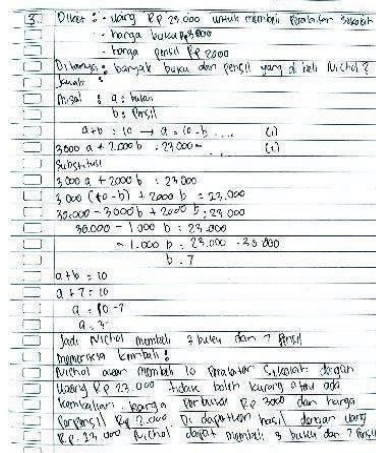 3. Diket : - uang Rp 23.000 untuk membeli Peralatan Sekolah
- harga buku Rp 3000
- harga pensil Rp 2000
Ditanya : banyak buku dan pensil yang di beli Nichol ?
Jawab :
Misal : a : buku
b : Pensil
a + b : 10 → a : 10 - b .... (1)
3000 a + 2.000 b : 23.000 (2)
Substitusi
3.000 a + 2000 b : 23.000
3.000 (10 - b) + 2000 b : 23.000
30.000 - 3000 b + 2000 b : 23.000
30.000 - 1000 b : 23.000
- 1.000 b : 23.000 - 30.000
b : 7
a + b = 10
a + 7 : 10
a : 10 - 7
a : 3
Jadi Nichol membeli 3 buku dan 7 Pensil
Memeriksa kembali :
Nichol akan membeli 10 Peralatan Sekolah dengan
Uang Rp 23.000 tidak boleh kurang atau ada
kembalian. harga Perbuku Rp 3000 dan harga
Perpensil Rp 2.000 Di dapatkan hasil dengan uang
Rp. 23.000 Nichol dapat membeli 3 buku dan 7 Pensil